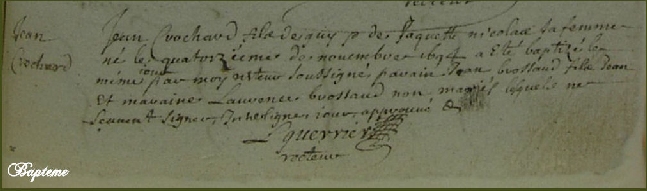 Jean
Crochard
Jean Crochard fils de Guy & de Jaquette nicolas sa femme
né le quatorzieme de novembre 1694 a eté baptisé le
même jour par moy recteur soussigné parain Jean brossaud fils Jean
et maraine Laurence brossaud non mariés lequels ne
sçavent signer, Interligne jour, approuvé &
L guerrier
recteur
Bapteme